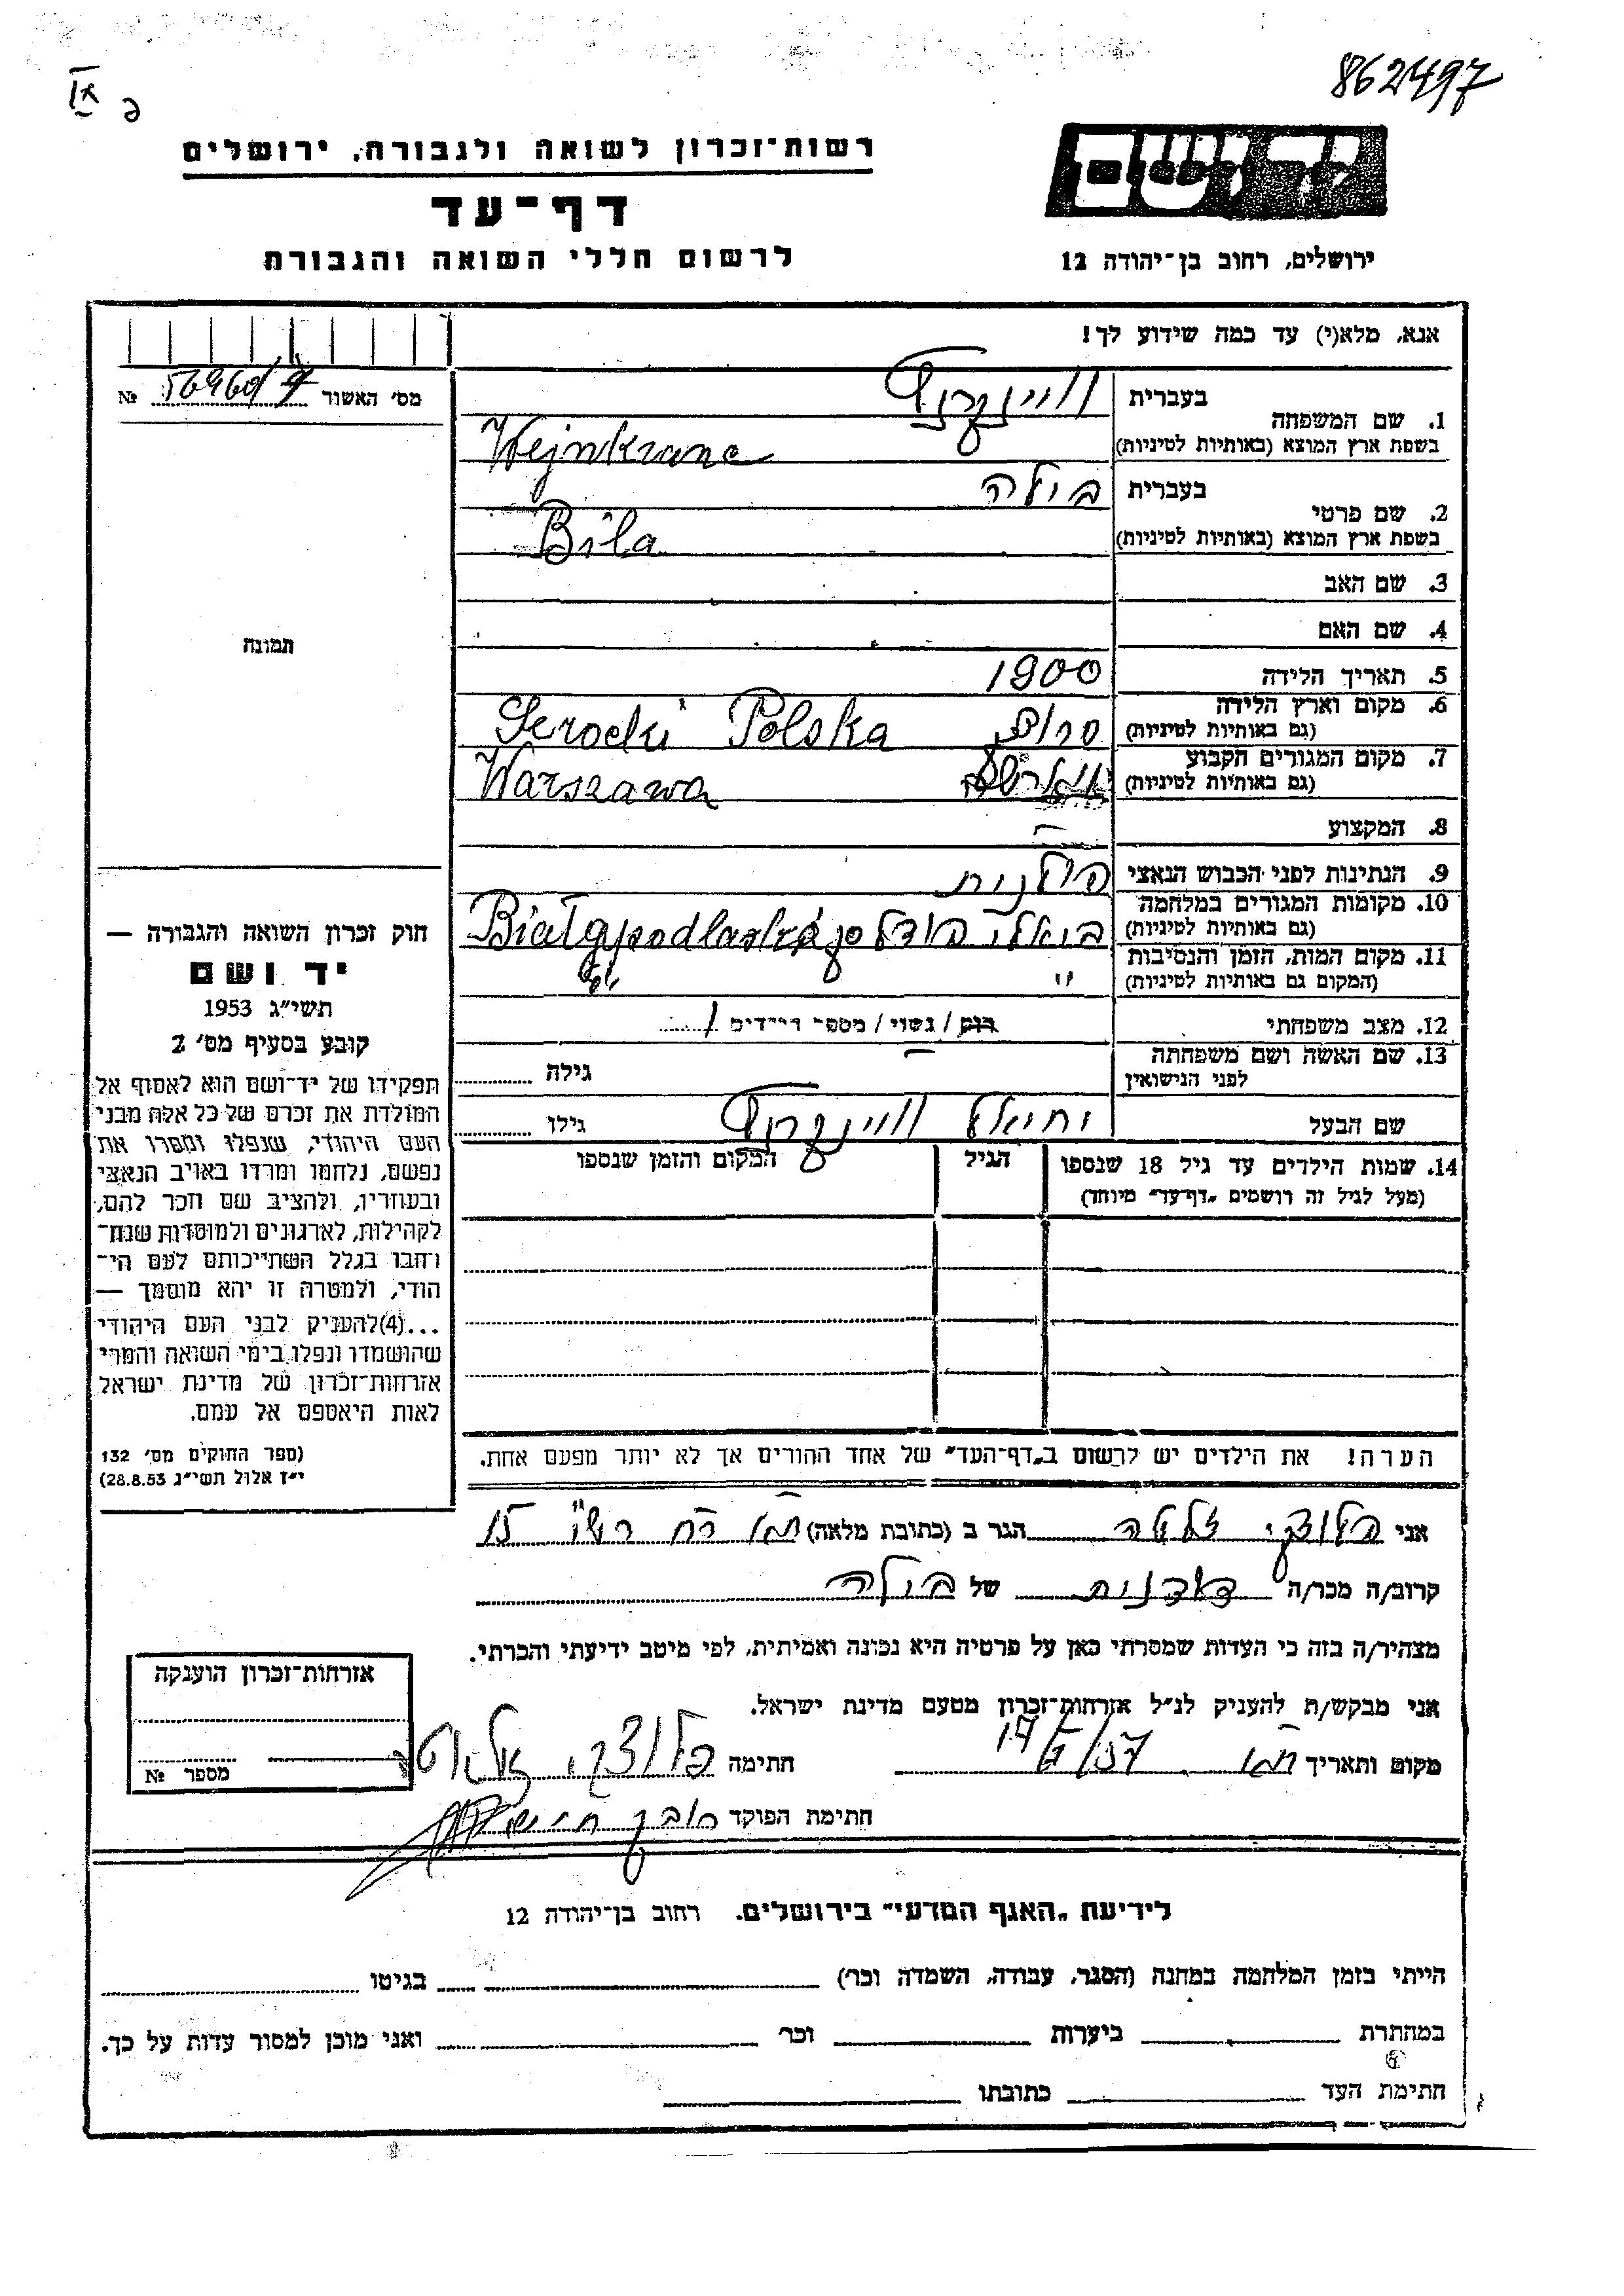 862497
רשות־זכרון לשואה ולגבורה, ירושלים
יד ושם
דף־עד
לרשום חללי השואה והגבורה
ירושלים, רחוב בן־יהודה 12
אנא, מלא(י) עד כמה שידוע לך!
מס' האשור № 56960/7
תמונה
1. שם המשפחה
בעברית
בשפת ארץ המוצא (באותיות לטיניות) Wejnkranc
2. שם פרטי
בעברית בילה
בשפת ארץ המוצא (באותיות לטיניות) Bila
3. שם האב
4. שם האם
5. תאריך הלידה 1900
6. מקום וארץ הלידה
(גם באותיות לטיניות) סרוצק Serocki Polska
7. מקום המגורים הקבוע
(גם באותיות לטיניות) Warszawa
8. המקצוע —
9. הנתינות לפני הכבוש הנאצי פולנית
10. מקומות המגורים במלחמה
(גם באותיות לטיניות) ביאלי פודלסק
11. מקום המות, הזמן והנסיבות
(המקום גם באותיות לטיניות) "
12. מצב משפחתי רוק / נשוי / מספר הילדים 1
13. שם האשה ושם משפחתה
לפני הנישואין — גילה
שם הבעל גילו
14. שמות הילדים עד גיל 18 שנספו
(מעל לגיל זה רושמים "דף־עד" מיוחד)
הגיל
המקום והזמן שנספו
הערה! את הילדים יש לרשום ב"דף־העד" של אחד ההורים אך לא יותר מפעם אחת.
חוק זכרון השואה והגבורה —
יד ושם
תשי"ג 1953
קובע בסעיף מס' 2
תפקידו של יד־ושם הוא לאסוף אל
המולדת את זכרם של כל אלה מבני
העם היהודי, שנפלו ומסרו את
נפשם, נלחמו ומרדו באויב הנאצי
ובעוזריו, ולהציב שם וזכר להם,
לקהילות, לארגונים ולמוסדות שנח־
רבו בגלל השתייכותם לעם הי־
הודי, ולמטרה זו יהא מוסמך —
...(4)להעניק לבני העם היהודי
שהושמדו ונפלו בימי השואה והמרי
אזרחות־זכרון של מדינת ישראל
לאות היאספם אל עמם.
(ספר החוקים מס' 132
י"ז אלול תשי"ג 28.8.53)
אני הגר ב (כתובת מלאה) 15
קרוב/ה מכר/ה של בילה
מצהיר/ה בזה כי העדות שמסרתי כאן על פרטיה היא נכונה ואמיתית, לפי מיטב ידיעתי והכרתי.
אני מבקש/ת להעניק לנ"ל אזרחות־זכרון מטעם מדינת ישראל.
מקום ותאריך חתימה
חתימת הפוקד
אזרחות־זכרון הוענקה
מספר №
לידיעת "האגף המדעי" בירושלים. רחוב בן־יהודה 12
הייתי בזמן המלחמה במחנה (הסגר, עבודה, השמדה וכר') בגיטו
במחתרת ביערות וכר' ואני מוכן למסור עדות על כך.
חתימת העד כתובתו